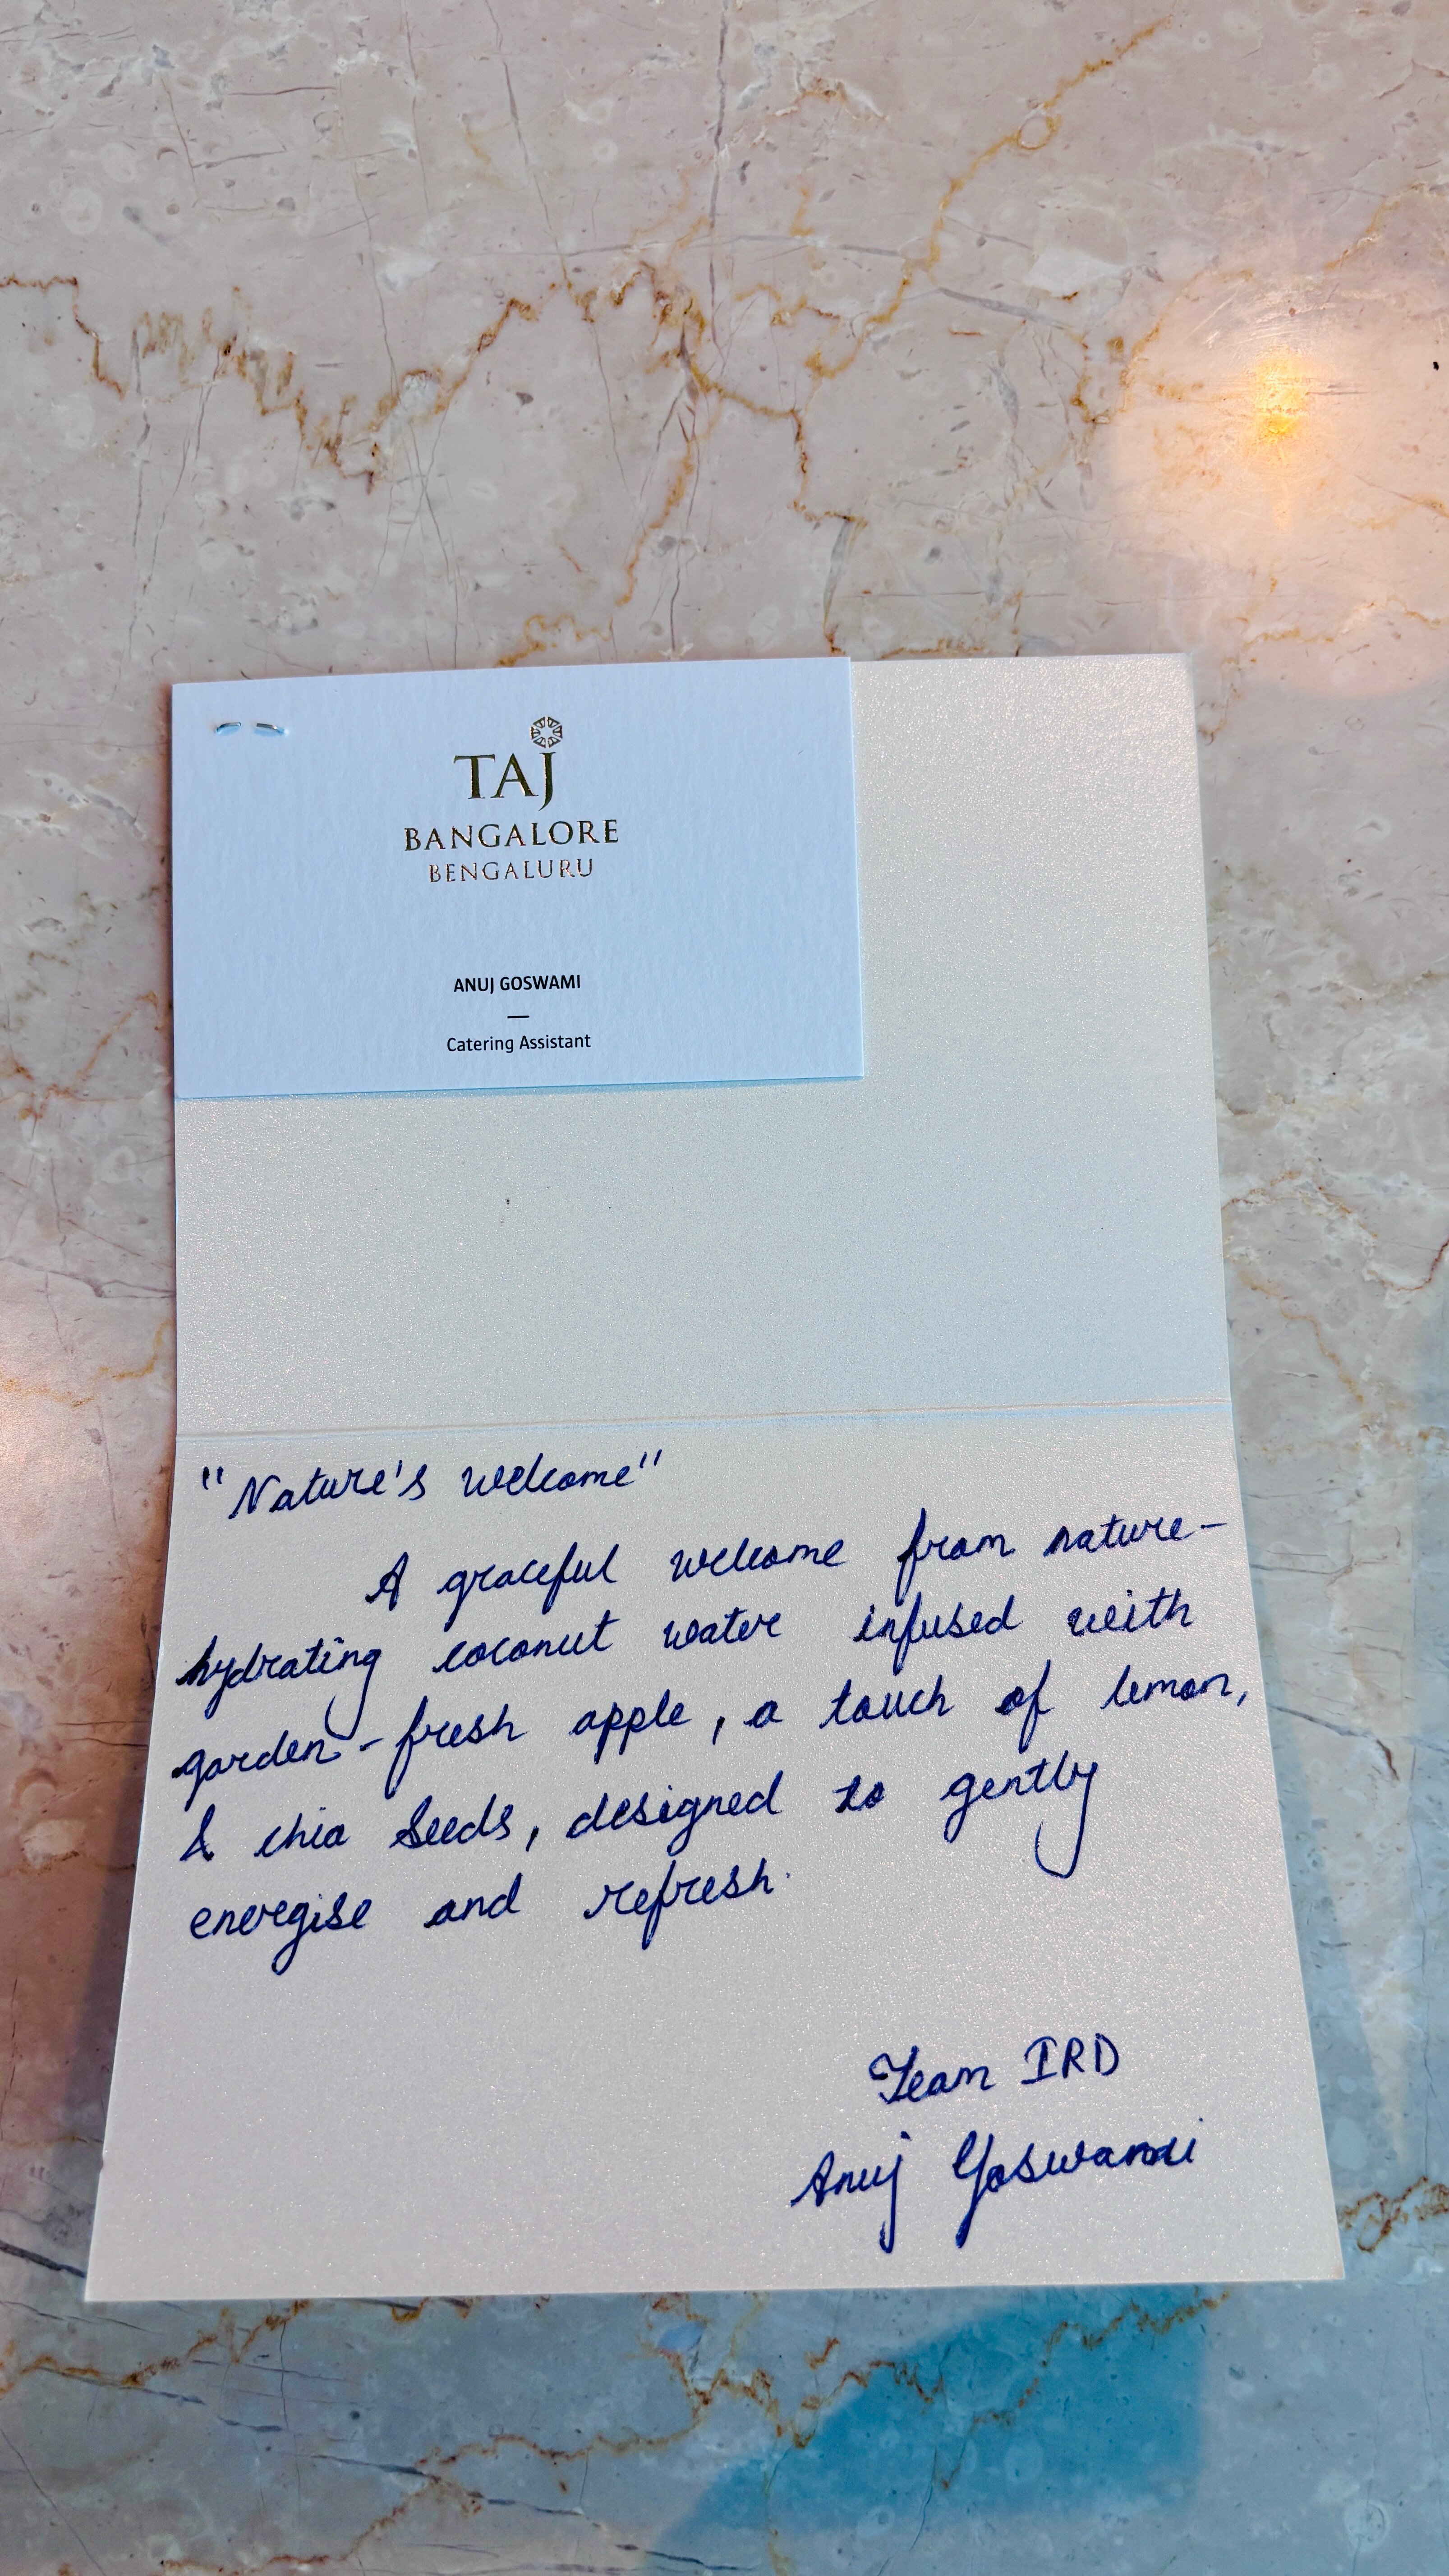 TAJ
BANGALORE
BENGALURU
ANUJ GOSWAMI
Catering Assistant
"Nature's welcome"
A graceful welcome from nature-
hydrating coconut water infused with
garden-fresh apple, a touch of lemon,
& chia seeds, designed to gently
energise and refresh.
Team IRD
Anuj Goswami